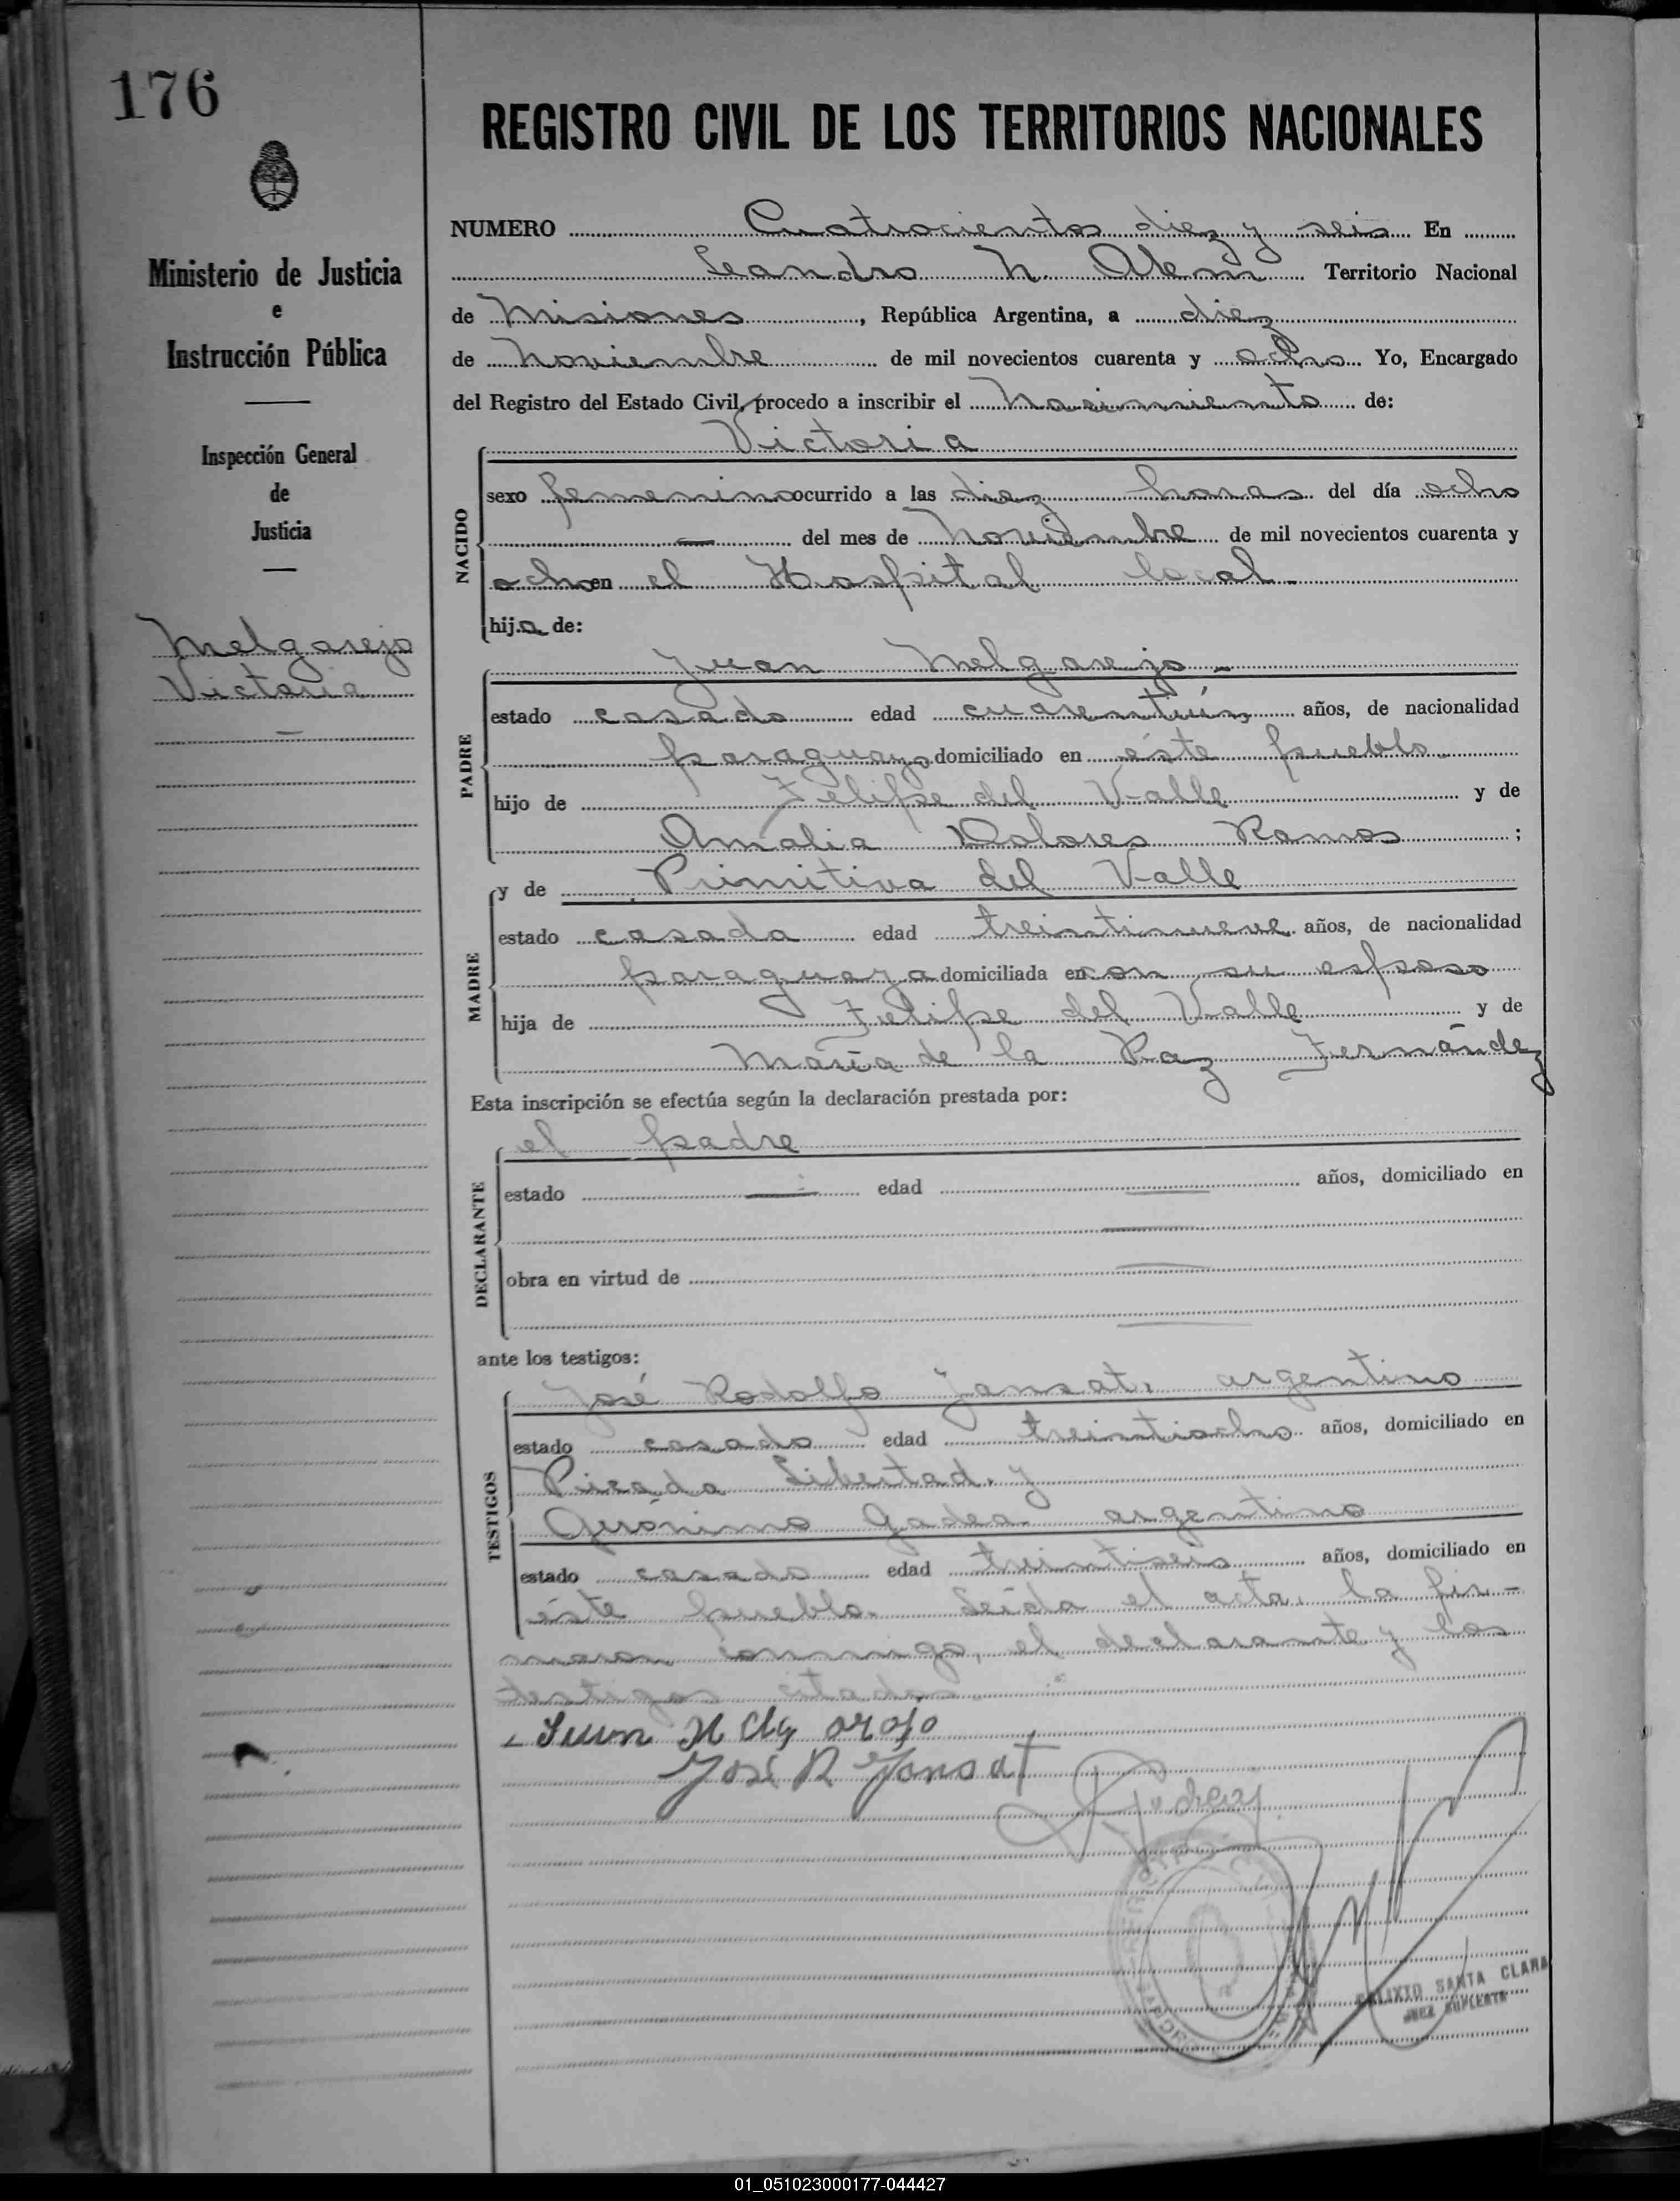 176
REGISTRO CIVIL DE LOS TERRITORIOS NACIONALES
Ministerio de Justicia
e
Instrucción Pública
Inspección General
de
Justicia
Melgarejo
Victoria
NUMERO Cuatrocientos diez y seis En
Leandro N. Alem Territorio Nacional
de Misiones, República Argentina, a diez
de Noviembre de mil novecientos cuarenta y ocho Yo, Encargado
del Registro del Estado Civil, procedo a inscribir el Nacimiento de:
Victoria
NACIDO
sexo femenino ocurrido a las diez horas del día ocho
— del mes de Noviembre de mil novecientos cuarenta y
ocho en el Hospital local.
hija de:
Juan Melgarejo.
PADRE
estado casado edad cuarentiún años, de nacionalidad
paraguayo domiciliado en éste pueblo
hijo de Felipe del Valle y de
Amalia Dolores Ramos;
MADRE
y de Primitiva del Valle
estado casada edad treintinueve años, de nacionalidad
paraguaya domiciliada en con su esposo
hija de Felipe del Valle y de
María de la Paz Fernández
Esta inscripción se efectúa según la declaración prestada por:
el padre
DECLARANTE
estado — edad — años, domiciliado en
obra en virtud de
ante los testigos:
TESTIGOS
José Rodolfo Jansat, argentino
estado casado edad treintiocho años, domiciliado en
Picada Libertad, y
Gerónimo Gadea argentino
estado casado edad treintiseis años, domiciliado en
éste pueblo. Leída el acta, la fir-
maron conmigo, el declarante y los
testigos citados.
Juan Melgarejo
José R Jansat
CALIXTO SANTA CLARA
JUEZ SUPLENTE
01_051023000177-044427